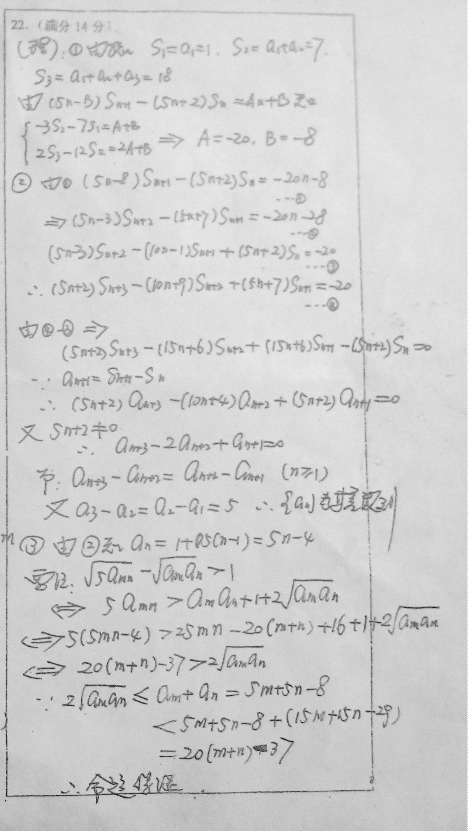 22.(满分14分)
(解):① 由已知 S₁=a₁=1. S₂=a₁+a₂=7.
S₃=a₁+a₂+a₃=18
由(5n-8)Sₙ₊₁-(5n+2)Sₙ=An+B 知
{-3S₂-7S₁=A+B
2S₃-12S₂=2A+B ⇒ A=-20, B=-8
② 由① (5n-8)Sₙ₊₁-(5n+2)Sₙ=-20n-8
---①
⇒(5n-3)Sₙ₊₂-(5n+7)Sₙ₊₁=-20n-28
---②
(5n-3)Sₙ₊₂-(10n-1)Sₙ₊₁+(5n+2)Sₙ=-20
---③
∴ (5n+2)Sₙ₊₃-(10n+9)Sₙ₊₂+(5n+7)Sₙ₊₁=-20
---④
由④-③ ⇒
(5n+2)Sₙ₊₃-(15n+6)Sₙ₊₂+(15n+6)Sₙ₊₁-(5n+2)Sₙ=0
∵ aₙ₊₁=Sₙ₊₁-Sₙ
∴ (5n+2)aₙ₊₃-(10n+4)aₙ₊₂+(5n+2)aₙ₊₁=0
又 5n+2≠0
∴ aₙ₊₃-2aₙ₊₂+aₙ₊₁=0
即: aₙ₊₃-aₙ₊₂=aₙ₊₂-aₙ₊₁ (n≥1)
又 a₃-a₂=a₂-a₁=5 ∴{aₙ}为
③ 由②知 aₙ=1+5(n-1)=5n-4
要证: √5aₘₙ-√aₘaₙ>1
⇔ 5aₘₙ>aₘaₙ+1+2√aₘaₙ
⇔5(5mn-4)>25mn-20(m+n)+16+1+2√aₘaₙ
⇔ 20(m+n)-37>2√aₘaₙ
∵ 2√aₘaₙ≤aₘ+aₙ=5m+5n-8
<5m+5n-8+(15m+15n-29)
=20(m+n)-37
∴ 命题得证